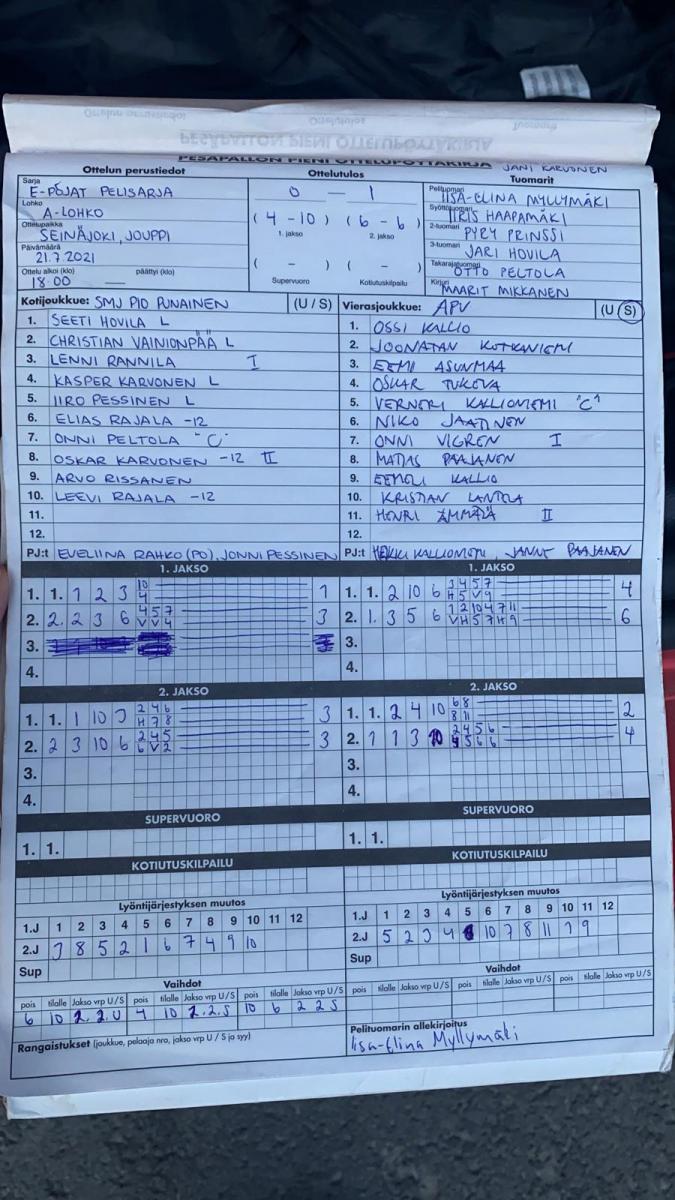 PESÄPALLON PIENI OTTELUPÖYTÄKIRJA
JANI KARVONEN
Ottelun perustiedot
Sarja
E-POJAT PELISARJA
Lohko
A-LOHKO
Ottelupaikka
SEINÄJOKI, JOUPPI
Päivämäärä
21.7.2021
Ottelu alkoi (klo) päättyi (klo)
18:00 —
Ottelutulos
0 — 1
(4 - 10) (6 - 6)
1. jakso 2. jakso
( - ) ( - )
Supervuoro Kotiutuskilpailu
Tuomarit
Pelituomari
IISA-ELINA MYLLYMÄKI
Syöttötuomari
IIRIS HAAPAMÄKI
2-tuomari
PYRY PRINSSI
3-tuomari
JARI HOVILA
Takarajatuomari
OTTO PELTOLA
Kirjuri
MAARIT MIKKANEN
Kotijoukkue: SMJ PIO PUNAINEN (U / S)
1. SEETI HOVILA L
2. CHRISTIAN VAINIONPÄÄ L
3. LENNI RANNILA I
4. KASPER KARVONEN L
5. IIRO PESSINEN L
6. ELIAS RAJALA -12
7. ONNI PELTOLA "C"
8. OSKAR KARVONEN -12 II
9. ARVO RISSANEN
10. LEEVI RAJALA -12
11.
12.
PJ:t EVELIINA RAHKO (PO), JONNI PESSINEN
Vierasjoukkue: APV (U / S)
1. OSSI KALLIO
2. JOONATAN KOTKANIEMI
3. EEMI ASUNMAA
4. OSKAR
5. VERNERI KALLIONIEMI "C"
6. NIKO JAATINEN
7. ONNI VIGREN I
8. MATIAS PAAJANEN
9. EEMELI KALLIO
10. KRISTIAN
11. HENRI ÄMMÄLÄ II
12.
PJ:t JANNE PAAJANEN
1. JAKSO
1. 1. 1 2 3 10 1
4
2. 2. 2 3 6 4 5 7 3
V V 4
3.
4.
1. JAKSO
1. 1. 2 10 6 3 4 5 7 4
H 5 V 9
2. 1. 3 5 6 1 2 10 4 7 11 6
V H 5 7 H 9
3.
4.
2. JAKSO
1. 1. 1 10 3 2 4 6 3
H 7 8
2. 2 3 10 6 2 4 5 3
6 V 2
3.
4.
2. JAKSO
1. 1. 2 4 10 6 8 2
8 11
2. 1 1 3 10 2 4 5 6 4
4 5 6 6
3.
4.
SUPERVUORO
1. 1.
SUPERVUORO
1. 1.
KOTIUTUSKILPAILU
KOTIUTUSKILPAILU
Lyöntijärjestyksen muutos
1.J 1 2 3 4 5 6 7 8 9 10 11 12
2.J 3 8 5 2 1 6 7 4 9 10
Sup
Lyöntijärjestyksen muutos
1.J 1 2 3 4 5 6 7 8 9 10 11 12
2.J 5 2 3 4 6 10 7 8 11 1 9
Sup
Vaihdot
pois tilalle Jakso vrp U / S pois tilalle Jakso vrp U / S pois tilalle Jakso vrp U / S
6 10 2. 2. U 4 10 2. 2. S 10 6 2 2 S
Rangaistukset (joukkue, pelaaja nro, jakso vrp U / S ja syy)
Vaihdot
pois tilalle Jakso vrp U / S pois tilalle Jakso vrp U / S
Pelituomarin allekirjoitus
Iisa-Elina Myllymäki